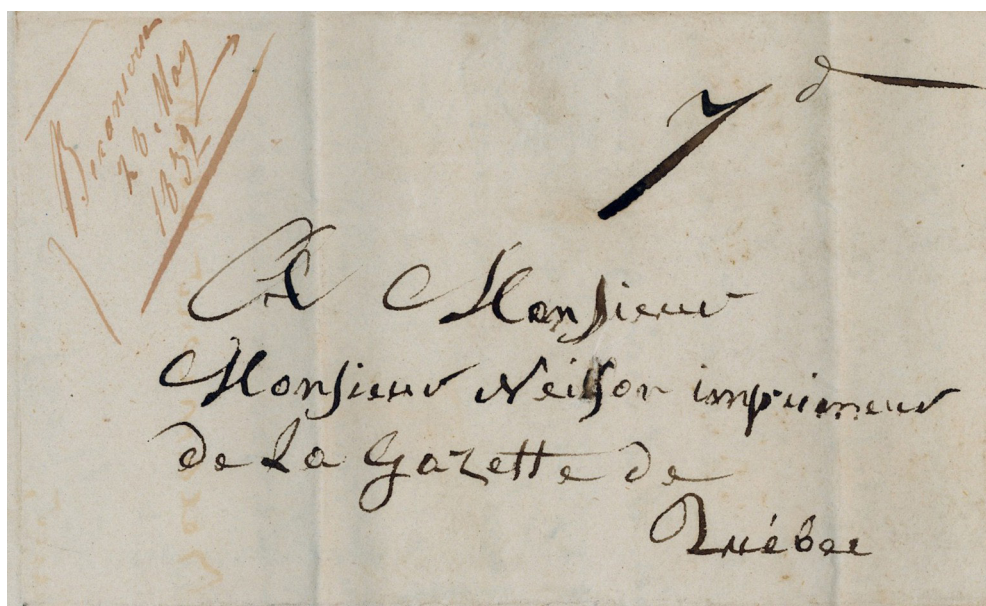 Becancour
28 May
1832
7 d
A Monsieur
Monsieur Neilson imprimeur
de La Gazette de
Québec